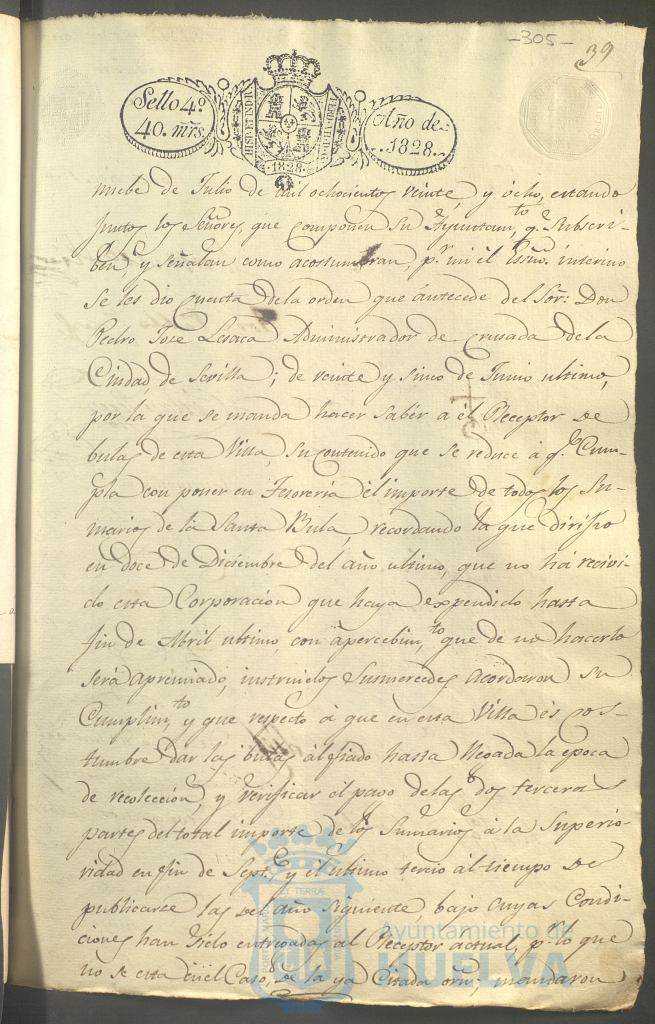 -305-
39
Sello 4º
40. mrs
HISP. ET IND. R.
FERD. VII. D. G.
1828
Año de
1828.
nuebe de Julio de mil ochocientos veinte y ocho, estando
juntos los Señores que componen su Ayuntam.to q.e subscri-
ben y señalan como acostumbran, p.r mi el Esno. interino
se les dio cuenta dela orden que ántecede del Sor. Don
Pedro Jose Lesaca Administrador de Crusada dela
Ciudad de Sevilla; de veinte y sinco de Junio ultimo,
por la que se manda hacer saber á él Receptor de
bulas de esta Villa, su contenido que se reduce á q.e Cum-
pla con poner en Tesoreria él importe de todos los Su-
marios de la Santa Bula, recordando la que dirijio
en doce de Diciembre del año ultimo, que no há recivi-
do esta Corporacion que haya expendido hasta
fin de Abril ultimo, con ápercebim.to que de no hacerlo
será apremiado, instruidos Susmercedes acordaron su
Cumplim.to y que respecto á que en esta Villa és cos-
tumbre dar las bulas ál fiado hasta llegada la epoca
de recoleccion, y verificar el pago delas dos terceras
partes del total importe de los Sumarios á la Superio-
ridad en fin de Sept.e y él ultimo tercio ál tiempo de
publicarce las del año siguiente, bajo cuyas Condi-
ciones han sido entregadas al Receptor actual, p.r lo que
no se esta en el Caso, de la ya Citada orn; mandaron
Ayuntamiento de
HUELVA